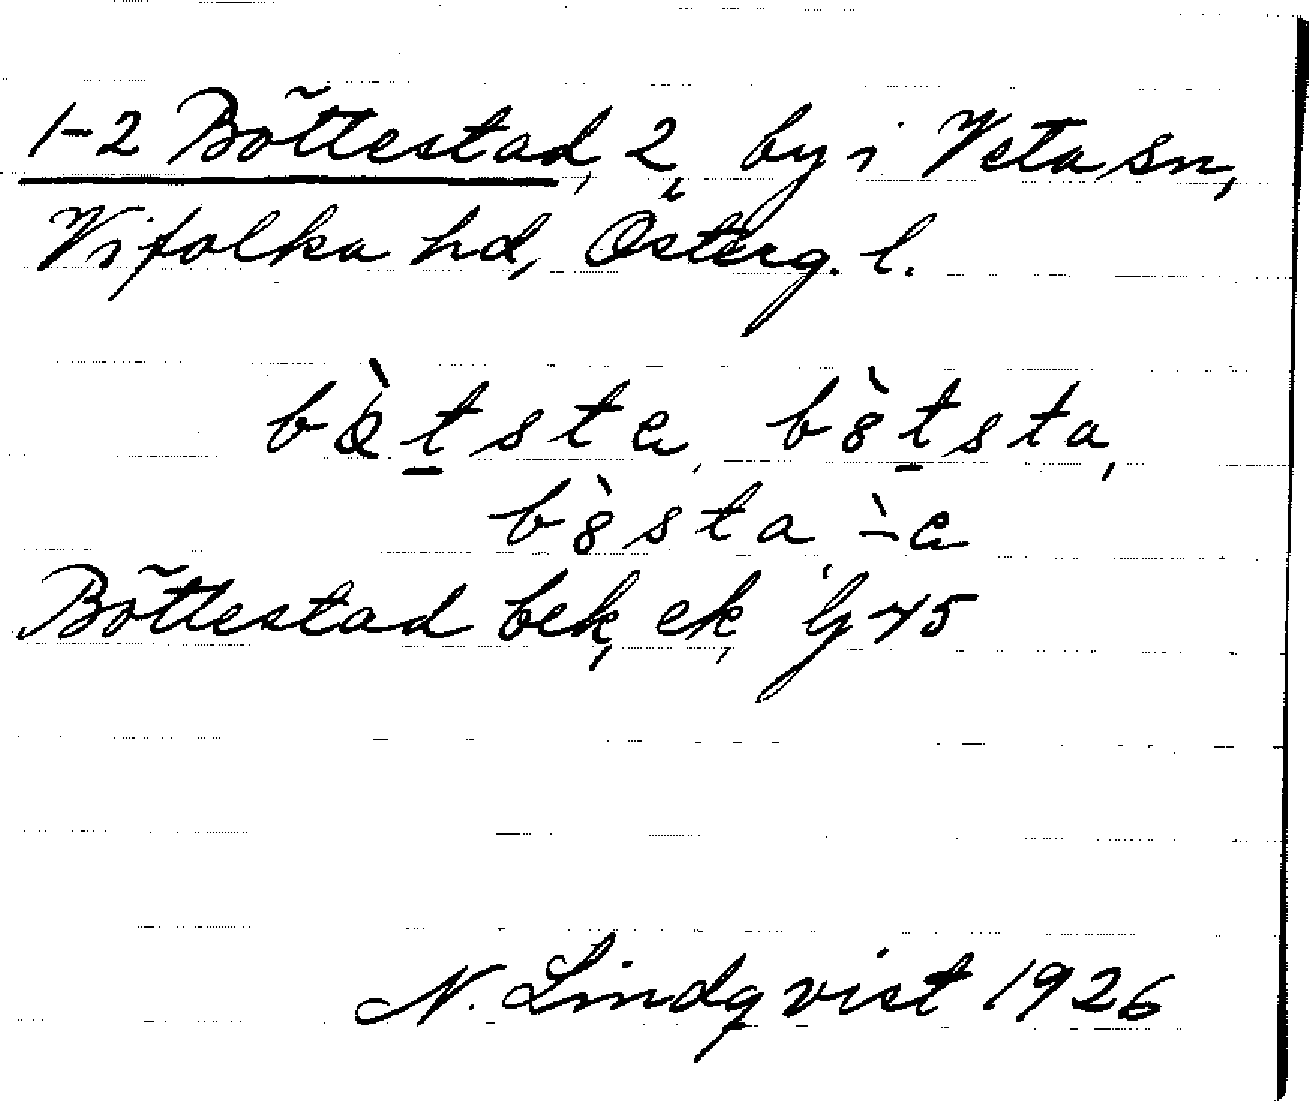 1-2 Böttestad, 2, by i Veta sn,
Vifolka hd, Österg. l.
bø̀tsta, bò̤tsta,
bò̤sta, -̀a
Böttestad bek, ek, Gj 45
N. Lindqvist 1926